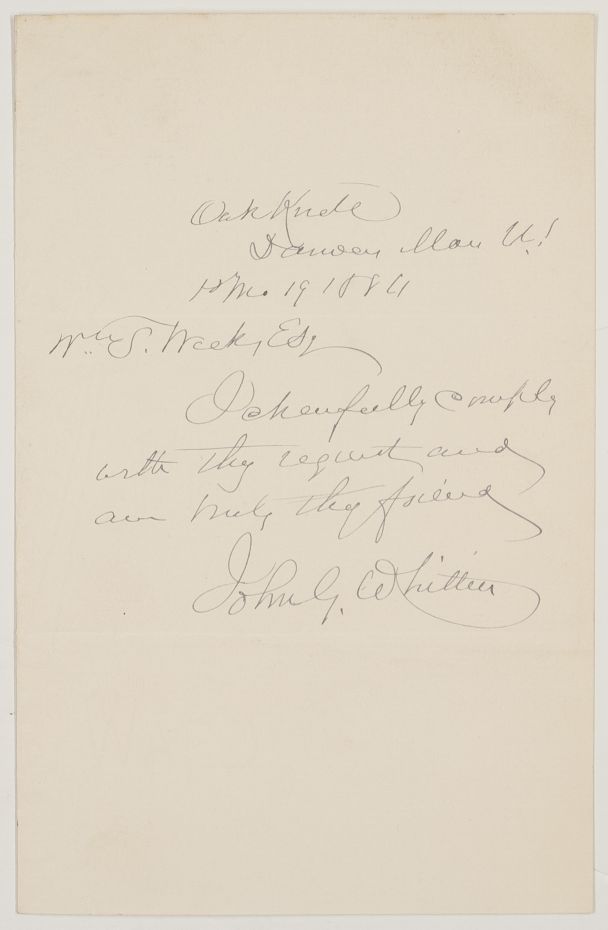 Oak Knoll
Danvers Mass
Mo. 19 1884
Wm S. Weeks, Esq
I cheerfully comply
with thy request and
am truly thy friend
John G. Whittier